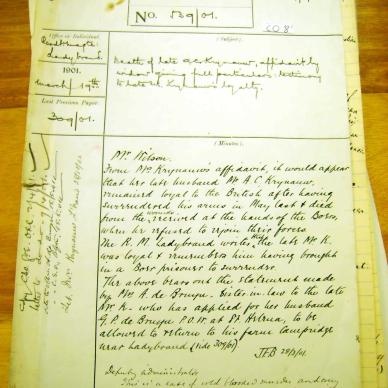 No. 539/01.
CO 8
Office or Individual.
Resdt Magte
Ladybrand
1901.
March 19th
Last Previous Paper.
309/01.
(Subject).
Death of late A.C. Krynauw, affidavit by
widow giving full particulars: testimony
to late Mr Krynauw's loyalty.
(Minutes).
Mr Wilson.
From Mrs Krynauw's affidavit, it would appear
that her late husband Mr A.C. Krynauw,
remained loyal to the British after having
surrendered his arms in May last & died
from the wounds received at the hands of the Boers,
when he refused to rejoin their forces.
The R.M. Ladybrand writes that the late Mr K.
was loyal & remembers him having brought
in a Boer prisoner to surrender.
The above bears out the statement made
by Mrs A. de Bruyn. Sister-in-law to the late
Mr K. who has applied for her husband
G.P. de Bruyn P.O.W. at St Helena, to be
allowed to return to his farm
near Ladybrand (vide 309/01)
JFB 28/3/01.
Deputy Administrator
This is a case of cold blooded murder and